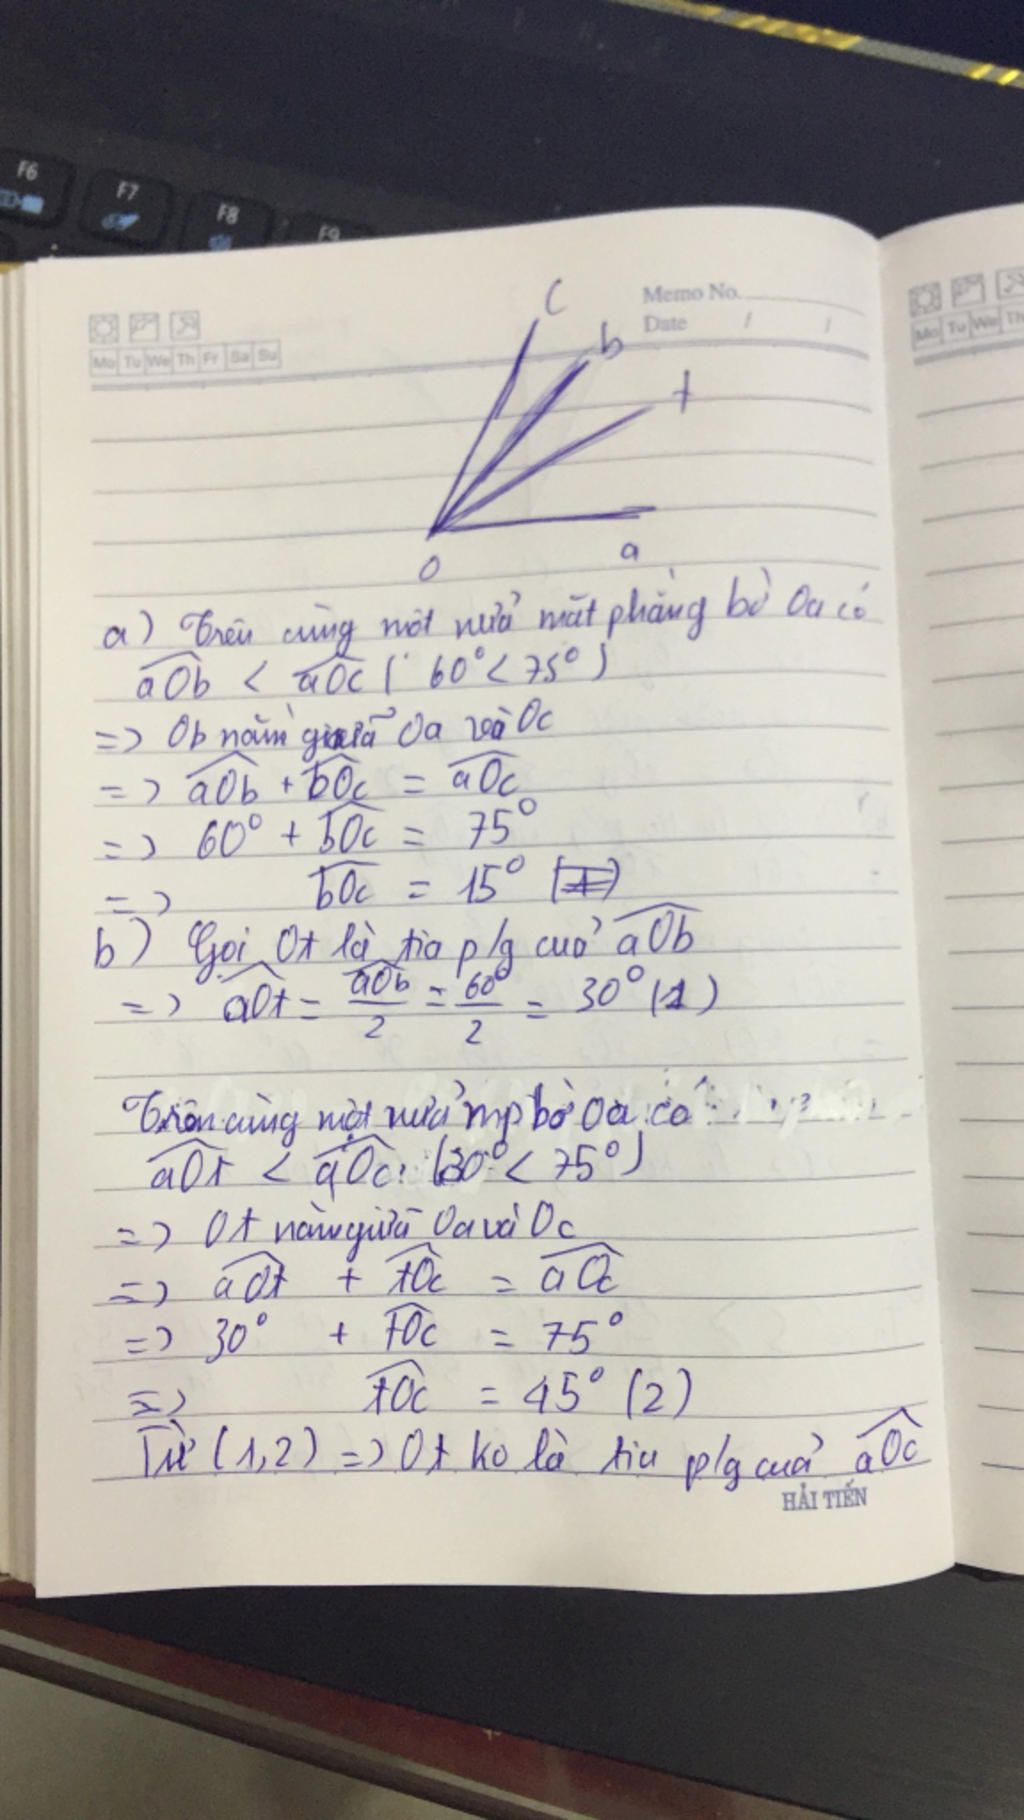 F6
F7
F8
F9
Memo No.
Date / /
Mo Tu We Th Fr Sa Su
Mo Tu We Th
c
b
t
O
a
a) Trên cùng một nửa mặt phẳng bờ Oa có
aOb < aOc ( 60° < 75° )
=> Ob nằm giữa Oa và Oc
=> aOb + bOc = aOc
=> 60° + bOc = 75°
=> bOc = 15°
b) Gọi Ot là tia p/g của aOb
=> aOt = aOb/2 = 60°/2 = 30° (1)
Trên cùng một nửa mp bờ Oa có
aOt < aOc (30° < 75°)
=> Ot nằm giữa Oa và Oc
=> aOt + tOc = aOc
=> 30° + tOc = 75°
=> tOc = 45° (2)
Từ (1,2) => Ot ko là tia p/g của aOc
HẢI TIẾN